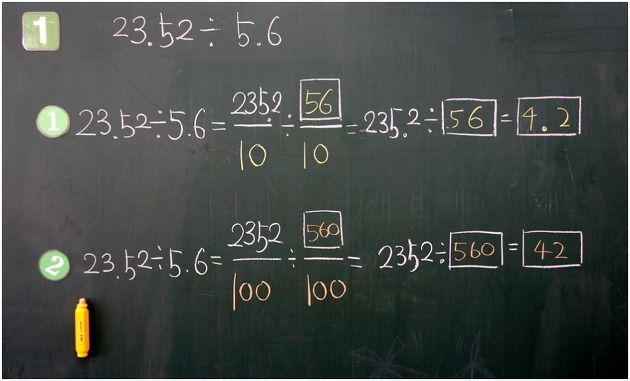 1 23.52÷5.6
1 23.52÷5.6=235.2/10÷56/10=235.2÷56=4.2
2 23.52÷5.6=2352/100÷560/100=2352÷560=42